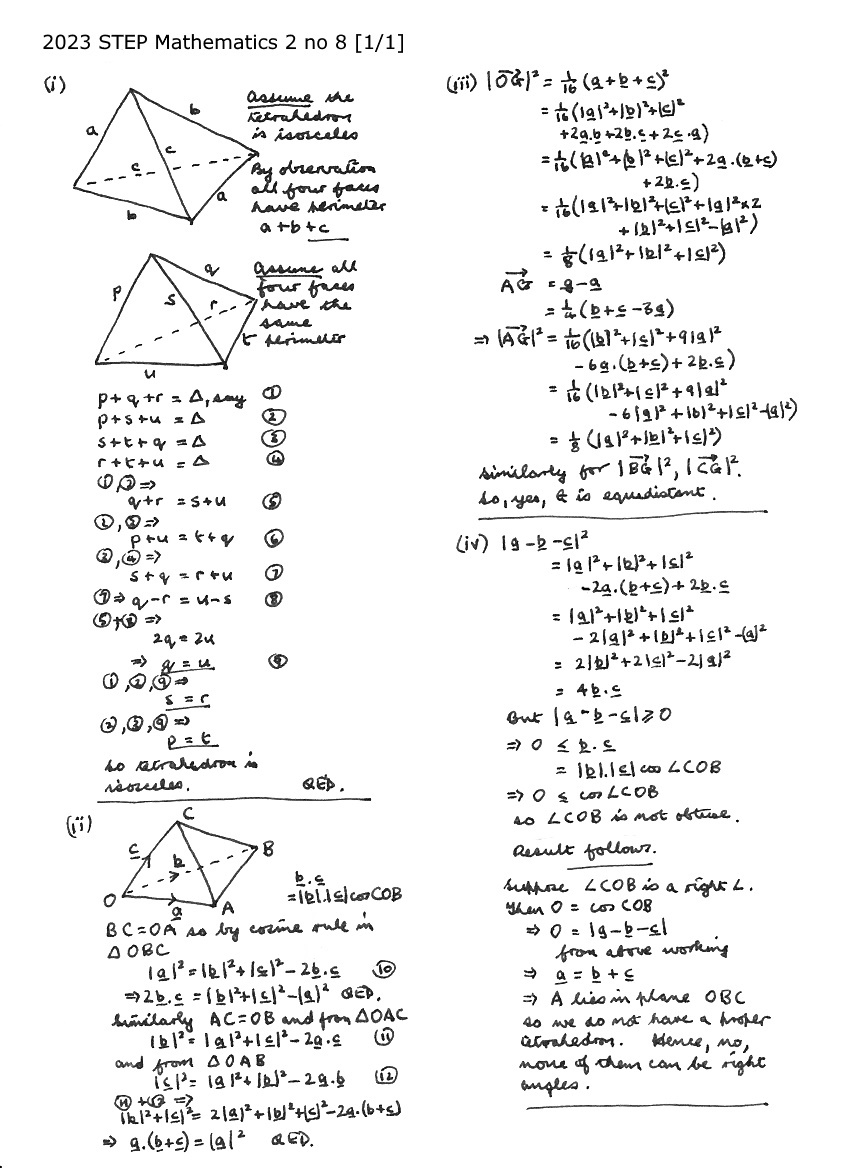 2023 STEP Mathematics 2 no 8 [1/1]
(i)
a
b
c
c
b
a
Assume the
tetrahedron
is isosceles
By observation
all four faces
have perimeter
a+b+c
p
q
s
r
t
u
Assume all
four faces
have the
same
perimeter
p+q+r = Δ, say ①
p+s+u = Δ ②
s+t+q = Δ ③
r+t+u = Δ ④
①,②⇒
q+r = s+u ⑤
②,③⇒
p+u = t+q ⑥
③,④⇒
s+q = r+u ⑦
⑦⇒ q-r = u-s ⑧
⑤+⑧⇒
2q = 2u
⇒ q = u ⑨
①,②,⑨⇒
s = r
②,③,⑨⇒
p = t
So tetrahedron is
isosceles. QED.
(ii)
C
c
b
B
O
a
A
b.c
=|b|.|c|cos COB
BC=OA so by cosine rule in
ΔOBC
|a|²=|b|²+|c|²-2b.c ⑩
⇒2b.c=|b|²+|c|²-|a|² QED.
Similarly AC=OB and from ΔOAC
|b|²=|a|²+|c|²-2a.c ⑪
and from ΔOAB
|c|²=|a|²+|b|²-2a.b ⑫
⑪+⑫⇒
|b|²+|c|²=2|a|²+|b|²+|c|²-2a.(b+c)
⇒ a.(b+c)=|a|² QED.
(iii) |OG|²=1/16(a+b+c)²
=1/16(|a|²+|b|²+|c|²
+2a.b+2b.c+2c.a)
=1/16(|a|²+|b|²+|c|²+2a.(b+c)
+2b.c)
=1/16(|a|²+|b|²+|c|²+|a|²×2
+|b|²+|c|²-|a|²)
=1/8(|a|²+|b|²+|c|²)
AG = g-a
=1/4(b+c-3a)
⇒|AG|²=1/16(|b|²+|c|²+9|a|²
-6a.(b+c)+2b.c)
=1/16(|b|²+|c|²+9|a|²
-6|a|²+|b|²+|c|²-|a|²)
=1/8(|a|²+|b|²+|c|²)
Similarly for |BG|², |CG|².
So, yes, G is equidistant.
(iv) |a-b-c|²
=|a|²+|b|²+|c|²
-2a.(b+c)+2b.c
=|a|²+|b|²+|c|²
-2|a|²+|b|²+|c|²-|a|²
=2|b|²+2|c|²-2|a|²
=4b.c
But |a-b-c|⩾0
⇒ 0 ≤ b.c
=|b|.|c|cos ∠COB
⇒ 0 ≤ cos∠COB
so ∠COB is not obtuse.
Result follows.
Suppose ∠COB is a right ∠.
Then 0 = cos COB
⇒ 0 = |a-b-c|
from above working
⇒ a = b+c
⇒ A lies in plane OBC
so we do not have a proper
tetrahedron. Hence, no,
none of them can be right
angles.